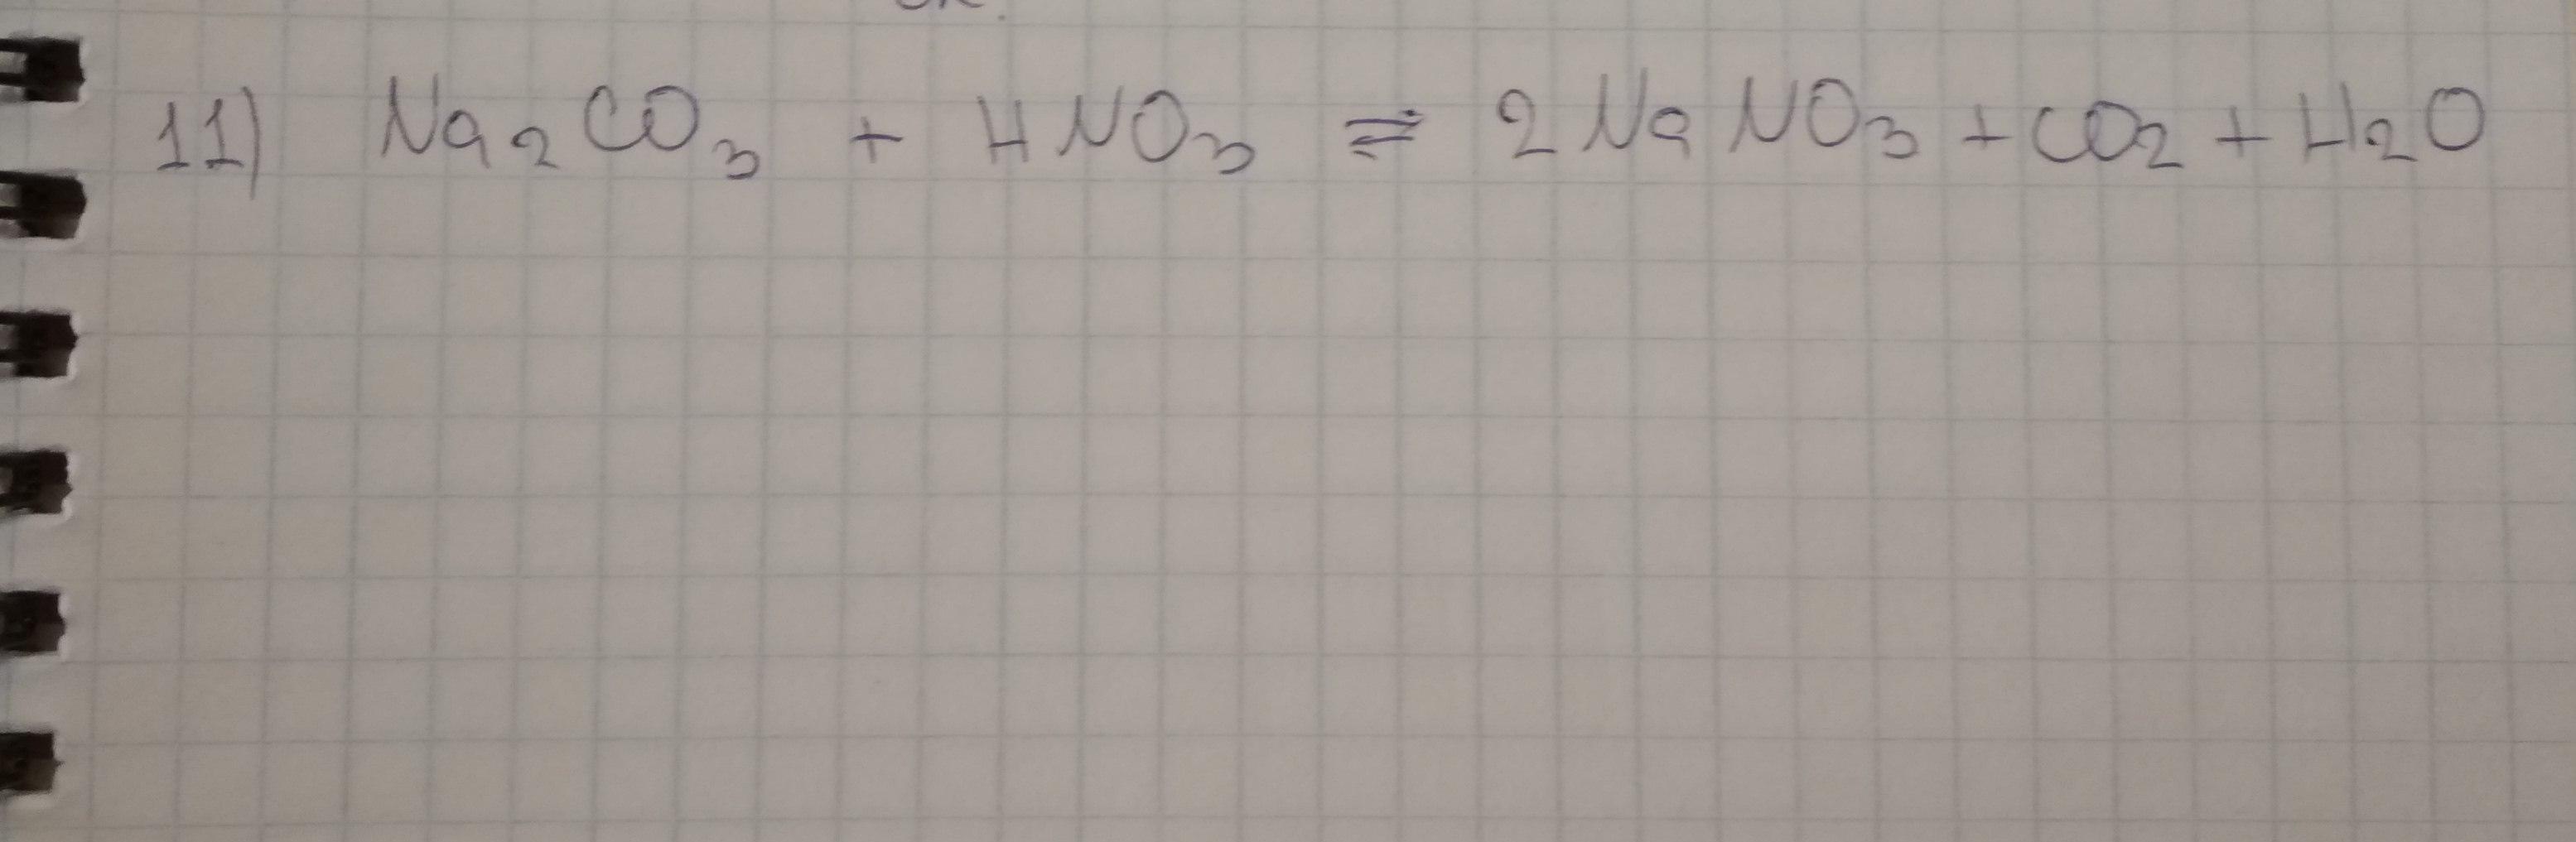 11) Na₂CO₃ + HNO₃ ⇌ 2NaNO₃ + CO₂ + H₂O